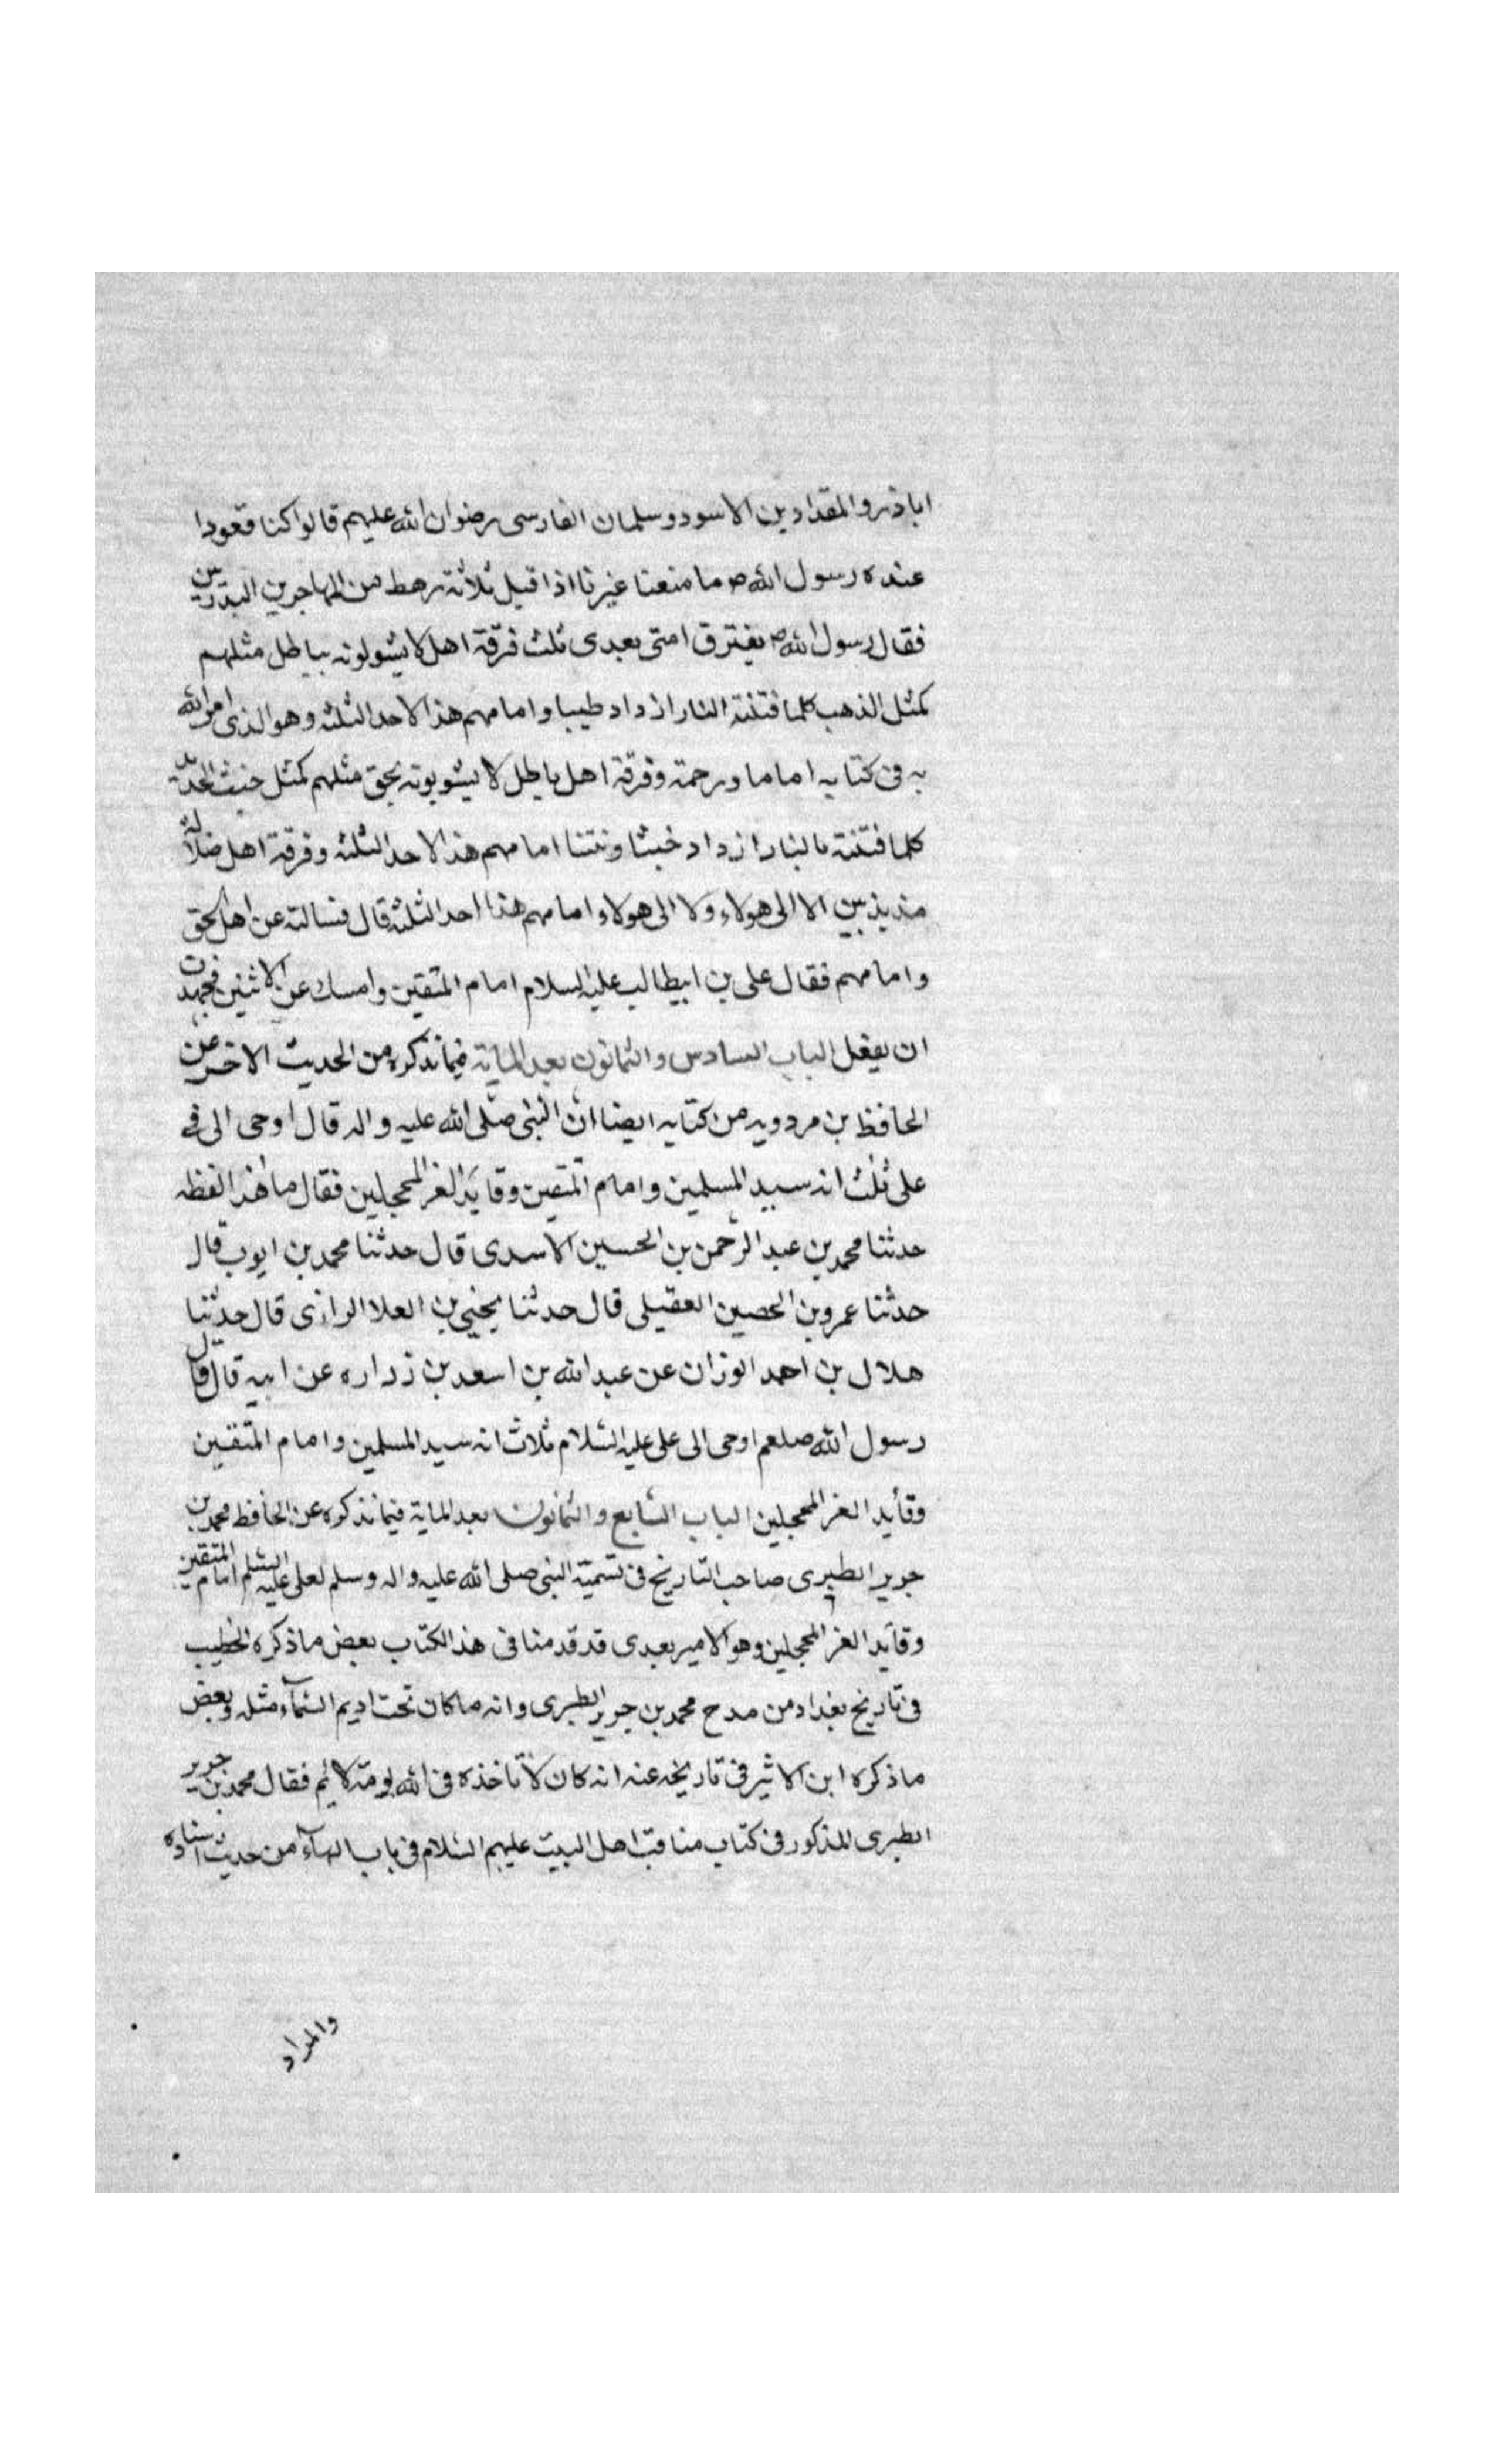 اباذر والمقداد بن الاسود وسلمان الفارسى رضوان الله عليهم قالوا كنا قعودا
عنده رسول الله ص ما منعنا غيرنا اذا قبل ثلاثة رهط من المهاجرين البدريين
فقال رسول الله ص يفترق امتى بعدى ثلث فرقة اهل لا يشولونه بباطل مثلهم
كمثل الذهب كلما فتنته النار ازداد طيبا وامامهم هذا لاحد الثلثه وهو الذى امر الله
به فى كتابه اماما ورحمة وفرقة اهل باطل لا يشوبونه بحق مثلهم كمثل خبث الحديد
كلما فتنته بالنار ازداد خبثا ونتنا امامهم هذا لاحد الثلثه وفرقة اهل ضلالة
مذبذبين الا الى هولاء ولا الى هولاء وامامهم هذا احد الثلثه قال فسالته عن اهل الحق
وامامهم فقال على بن ابيطالب عليه السلام امام المتقين وامسك عن الاثنين فجهدت
ان يفعل الباب السادس والثمانون بعد الماية فيما نذكره من الحديث الاخر عن
الحافظ بن مردويه من كتابه ايضا ان النبى صلى الله عليه واله قال اوحى الى فى
على ثلث انه سيد المسلمين وامام المتقين وقايد الغر المحجلين فقال ما هذا لفظه
حدثنا محمد بن عبد الرحمن بن الحسين الاسدى قال حدثنا محمد بن ايوب قال
حدثنا عمرو بن الحصين العقيلى قال حدثنا يحيى بن العلا الرازى قال حدثنا
هلال بن احمد الوزان عن عبد الله بن اسعد بن زراره عن ابيه قال قال
رسول الله صلعم اوحى الى على عليه السلام ثلاث انه سيد المسلمين وامام المتقين
وقايد الغر المحجلين الباب السابع والثمانون بعد الماية فيما نذكره عن الحافظ محمد بن
جرير الطبرى صاحب التاريخ فى تسمية النبى صلى الله عليه واله وسلم لعلى عليه السلم امام المتقين
وقايد الغر المحجلين وهو الامير بعدى قد قدمنا فى هذا الكتاب بعض ما ذكره الخطيب
فى تاريخ بغداد من مدح محمد بن جرير الطبرى وانه ما كان تحت اديم السماء مثله وبعض
ما ذكره ابن الاثير فى تاريخه عنه انه كان لا تاخذه فى الله لومة لائم فقال محمد بن جرير
الطبرى المذكور فى كتاب مناقب اهل البيت عليهم السلام فى باب الهاء من حديث اسناده
والمراد